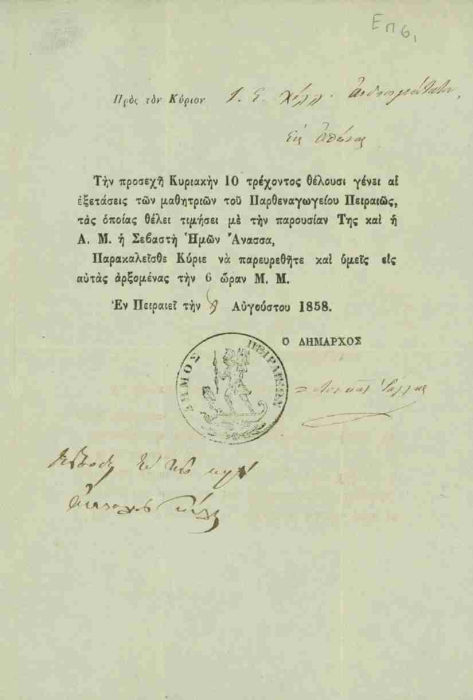 Επ 6,
Πρὸς τὸν Κύριον Ι. Ε. Χιλλ
Εἰς Ἀθήνας
Τὴν προσεχῆ Κυριακὴν 10 τρέχοντος θέλουσι γένει αἱ
ἐξετάσεις τῶν μαθητριῶν τοῦ Παρθεναγωγείου Πειραιῶς,
τὰς ὁποίας θέλει τιμήσει μὲ τὴν παρουσίαν Της καὶ ἡ
Α. Μ. ἡ Σεβαστὴ Ἡμῶν Ἄνασσα,
Παρακαλεῖσθε Κύριε νὰ παρευρεθῆτε καὶ ὑμεῖς εἰς
αὐτὰς ἀρξομένας τὴν 6 ὥραν Μ. Μ.
Ἐν Πειραιεῖ τὴν Αὐγούστου 1858.
Ο ΔΗΜΑΡΧΟΣ
ΔΗΜΟΣ ΠΕΙΡΑΙΕΩΝ